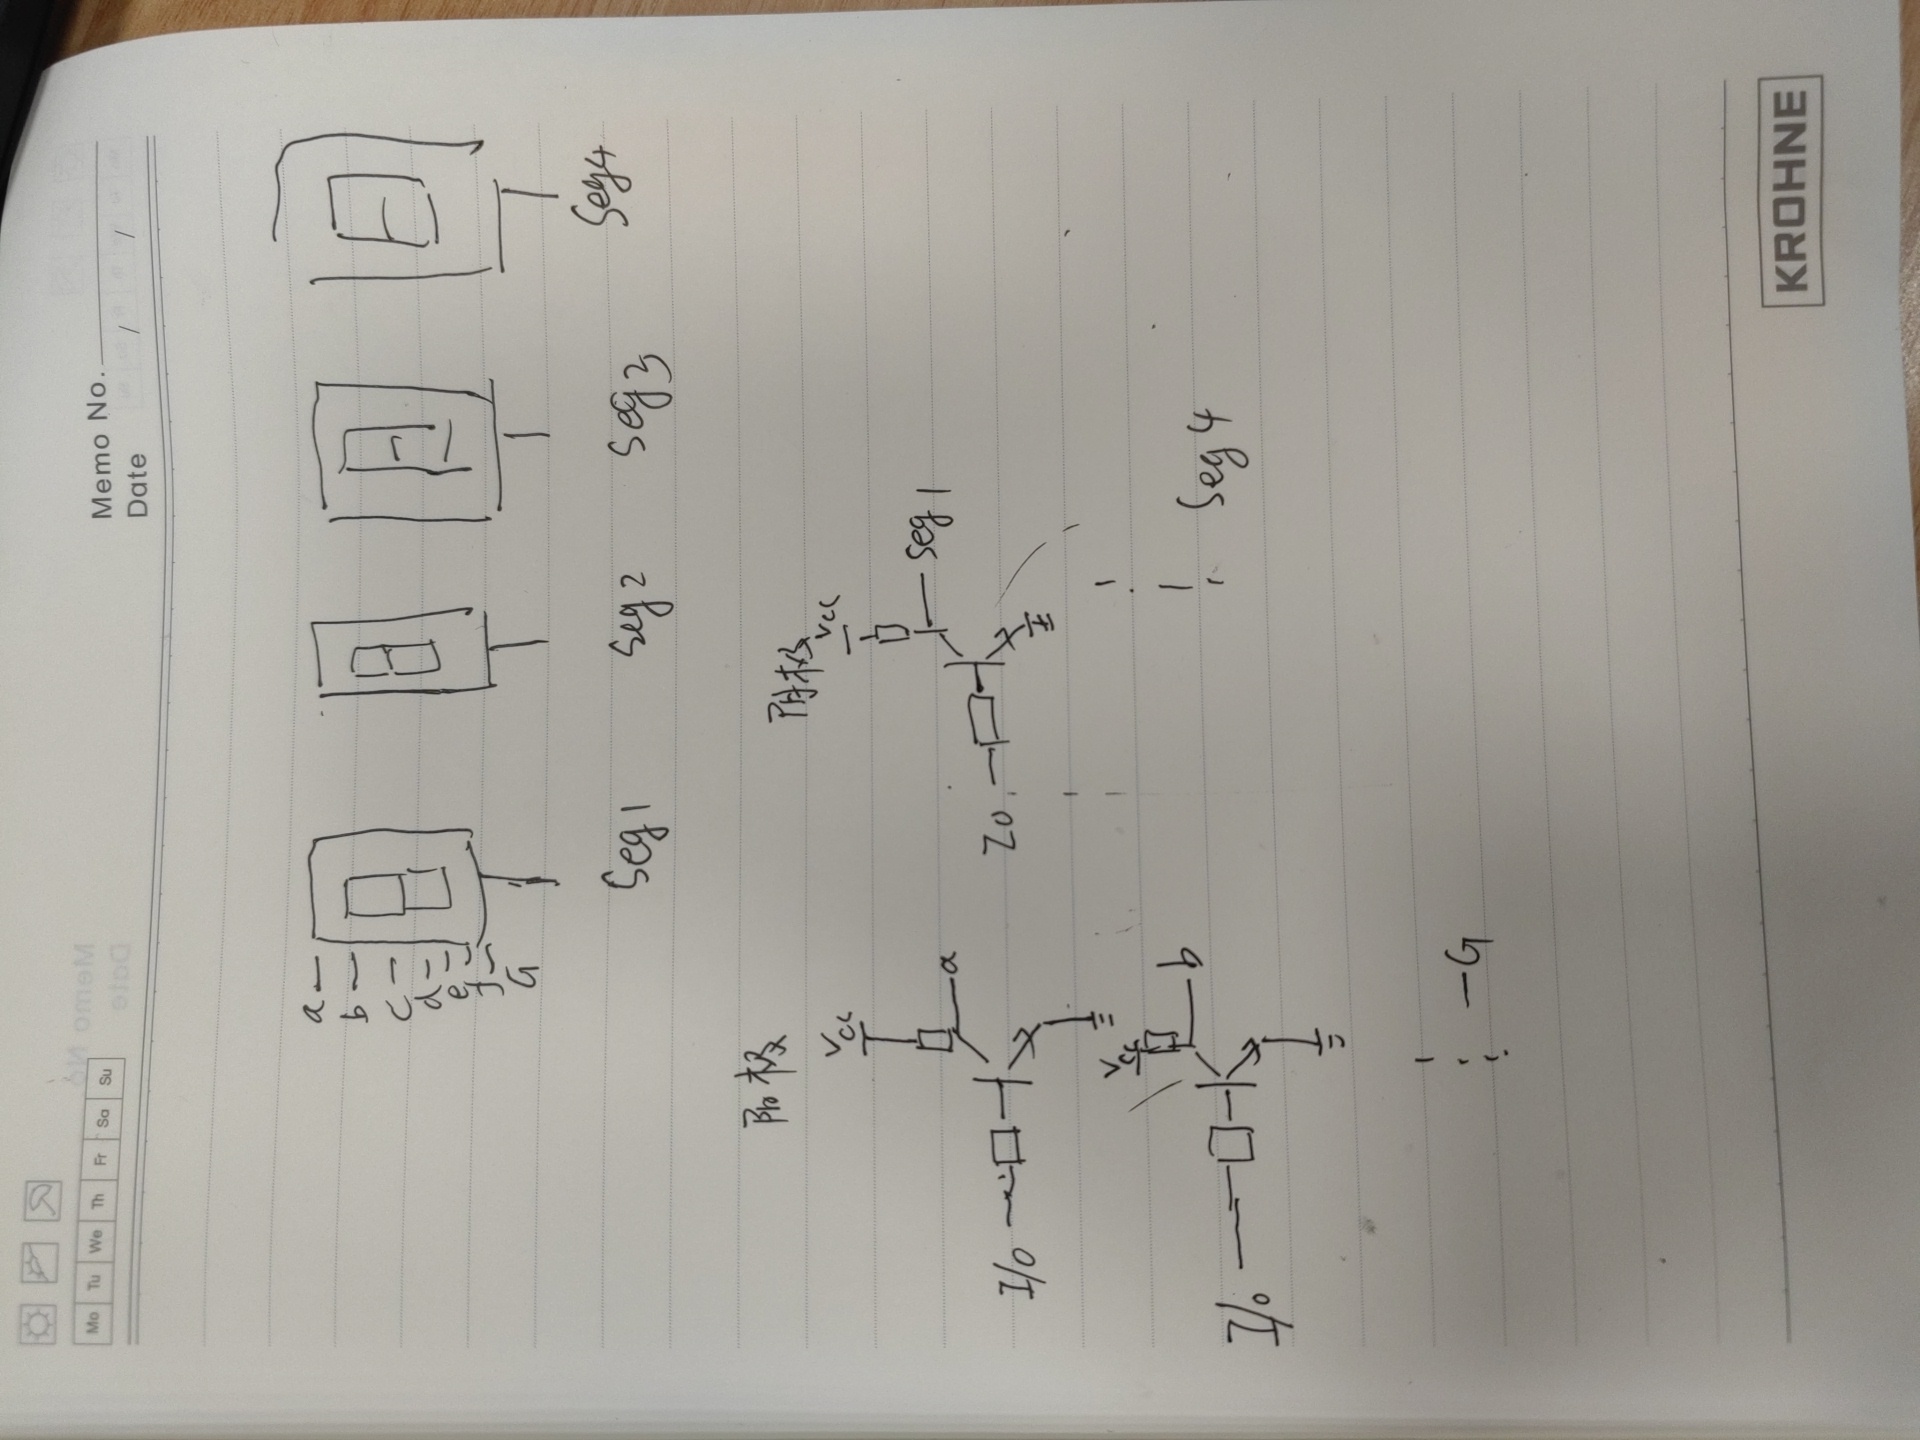 Memo No.
Mo Tu We Th Fr Sa Su
Date / /
a
b
c
d
e
f
G
Seg1
Seg2
Seg3
Seg4
阳极
Vcc
a
I/O
Vcc
b
I/O
G
阴极
Vcc
Seg1
Seg4
KROHNE